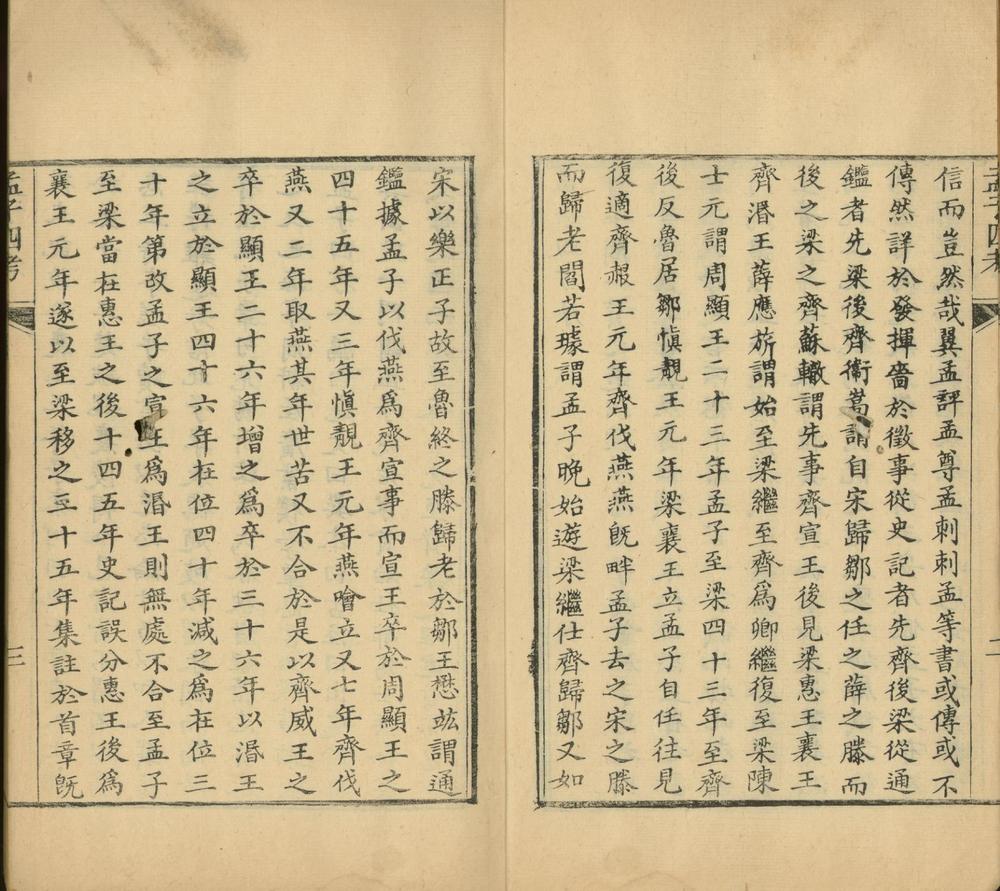 信而豈然哉翼孟評孟尊孟刺刺孟等書或傳或不
傳然詳於發揮嗇於徵事從史記者先齊後梁從通
鑑者先梁後齊衞嵩謂自宋歸鄒之任之薛之滕而
後之梁之齊蘇轍謂先事齊宣王後見梁惠王襄王
齊湣王薛應旂謂始至梁繼至齊爲卿繼復至梁陳
士元謂周顯王二十三年孟子至梁四十三年至齊
後反魯居鄒愼靚王元年梁襄王立孟子自任往見
復適齊赧王元年齊伐燕燕旣畔孟子去之宋之滕
而歸老閻若璩謂孟子晚始遊梁繼仕齊歸鄒又如
宋以樂正子故至魯終之滕歸老於鄒王懋竑謂通
鑑據孟子以伐燕爲齊宣事而宣王卒於周顯王之
四十五年又三年愼靚王元年燕噲立又七年齊伐
燕又二年取燕其年世苦又不合於是以齊威王之
卒於顯王二十六年增之爲卒於三十六年以湣王
之立於顯王四十六年在位四十年減之爲在位三
十年第改孟子之宣王爲湣王則無處不合至孟子
至梁當在惠王之後十四五年史記誤分惠王後爲
襄王元年遂以至梁移之三十五年集註於首章旣
孟子四考
三